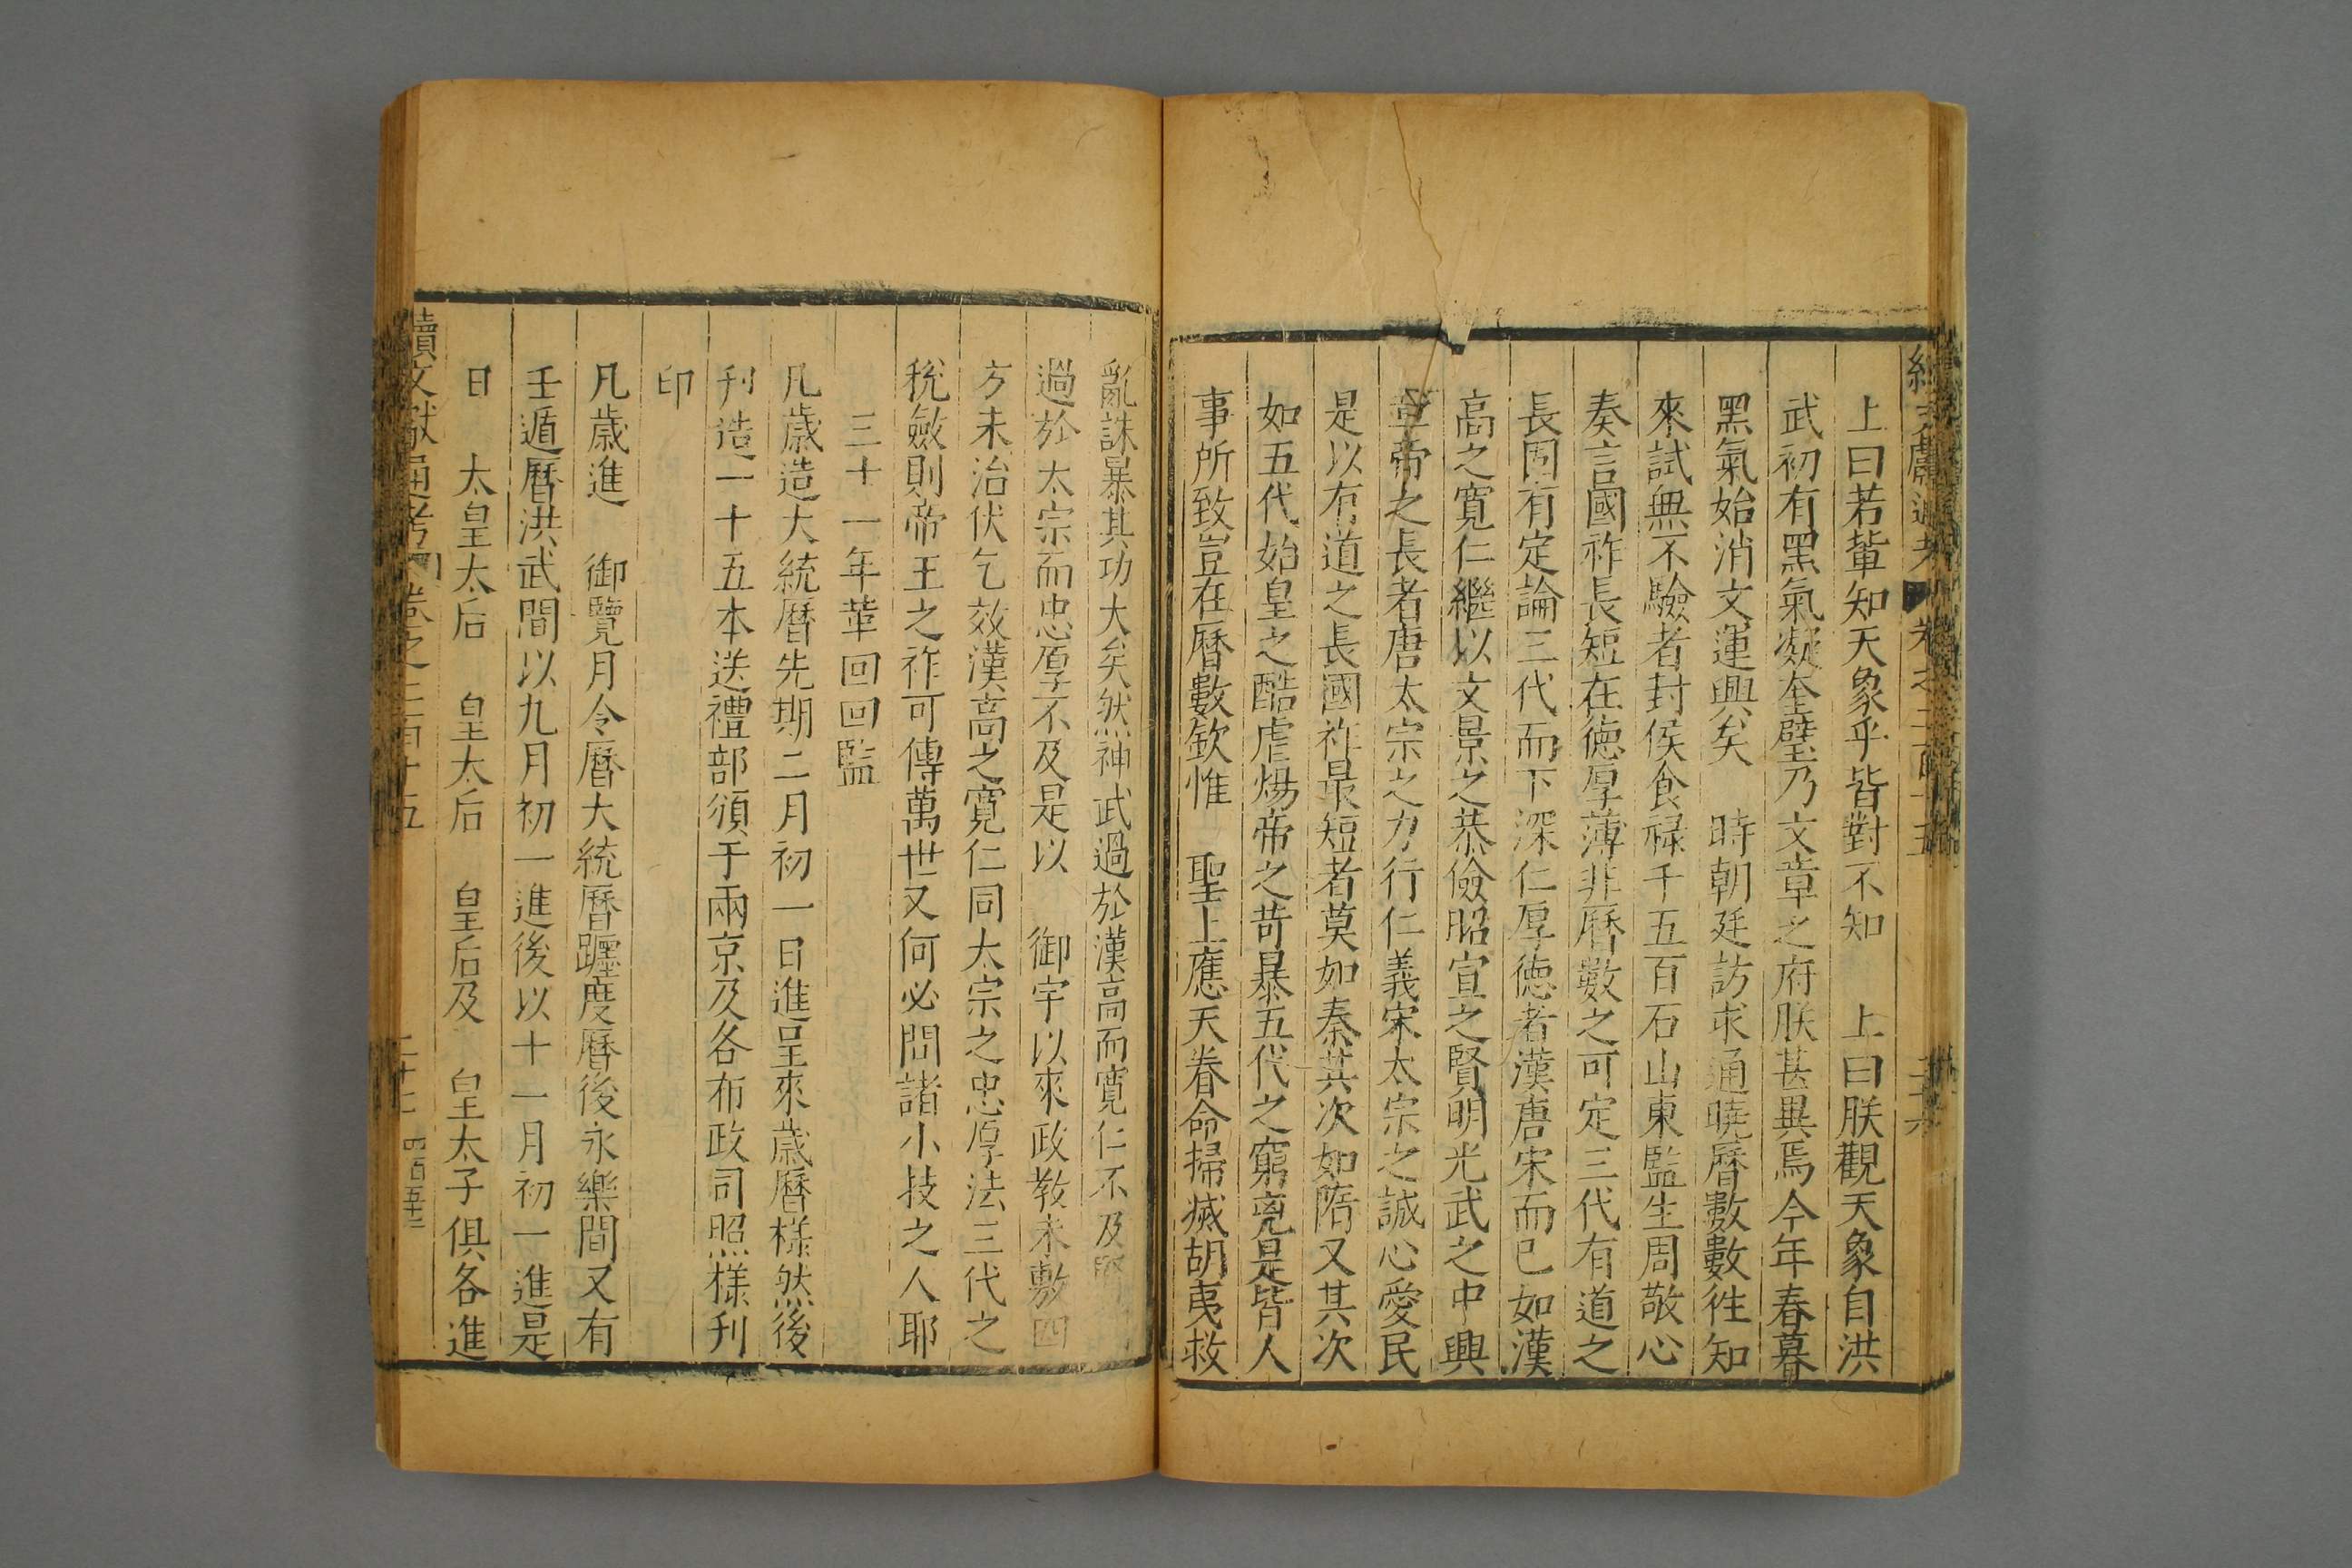 上曰若輩知天象乎皆對不知　上曰朕觀天象自洪
武初有黑氣凝奎壁乃文章之府朕甚異焉今年春暮
黑氣始消文運興矣　時朝廷訪求通曉曆數數徃知
來試無不驗者封侯食祿千五百石山東監生周敬心
奏言國祚長短在德厚薄非曆數之可定三代有道之
長固有定論三代而下深仁厚德者漢唐宋而已如漢
高之寬仁繼以文景之恭儉昭宣之賢明光武之中興
章帝之長者唐太宗之力行仁義宋太宗之誠心愛民
是以有道之長國祚最短者莫如秦其次如隋又其次
如五代始皇之酷虐煬帝之苛暴五代之窮兇是皆人
事所致豈在曆數欽惟　聖上應天眷命掃滅胡夷救
亂誅暴其功大矣然神武過於漢高而寬仁不及賢
過於太宗而忠厚不及是以　御宇以來政教未敷四
方未治伏乞效漢高之寬仁同太宗之忠厚法三代之
稅斂則帝王之祚可傳萬世又何必問諸小技之人耶
三十一年革回回監
凡歲造大統曆先期二月初一日進呈來歲曆樣然後
刋造一十五本送禮部頒于兩京及各布政司照樣刋
印
凡歲進　御覽月令曆大統曆躔度曆後永樂間又有
壬遁曆洪武間以九月初一進後以十一月初一進是
日　太皇太后　皇太后　皇后及　皇太子俱各進
續文獻通考　卷之二百十五　二十七　四百五十二